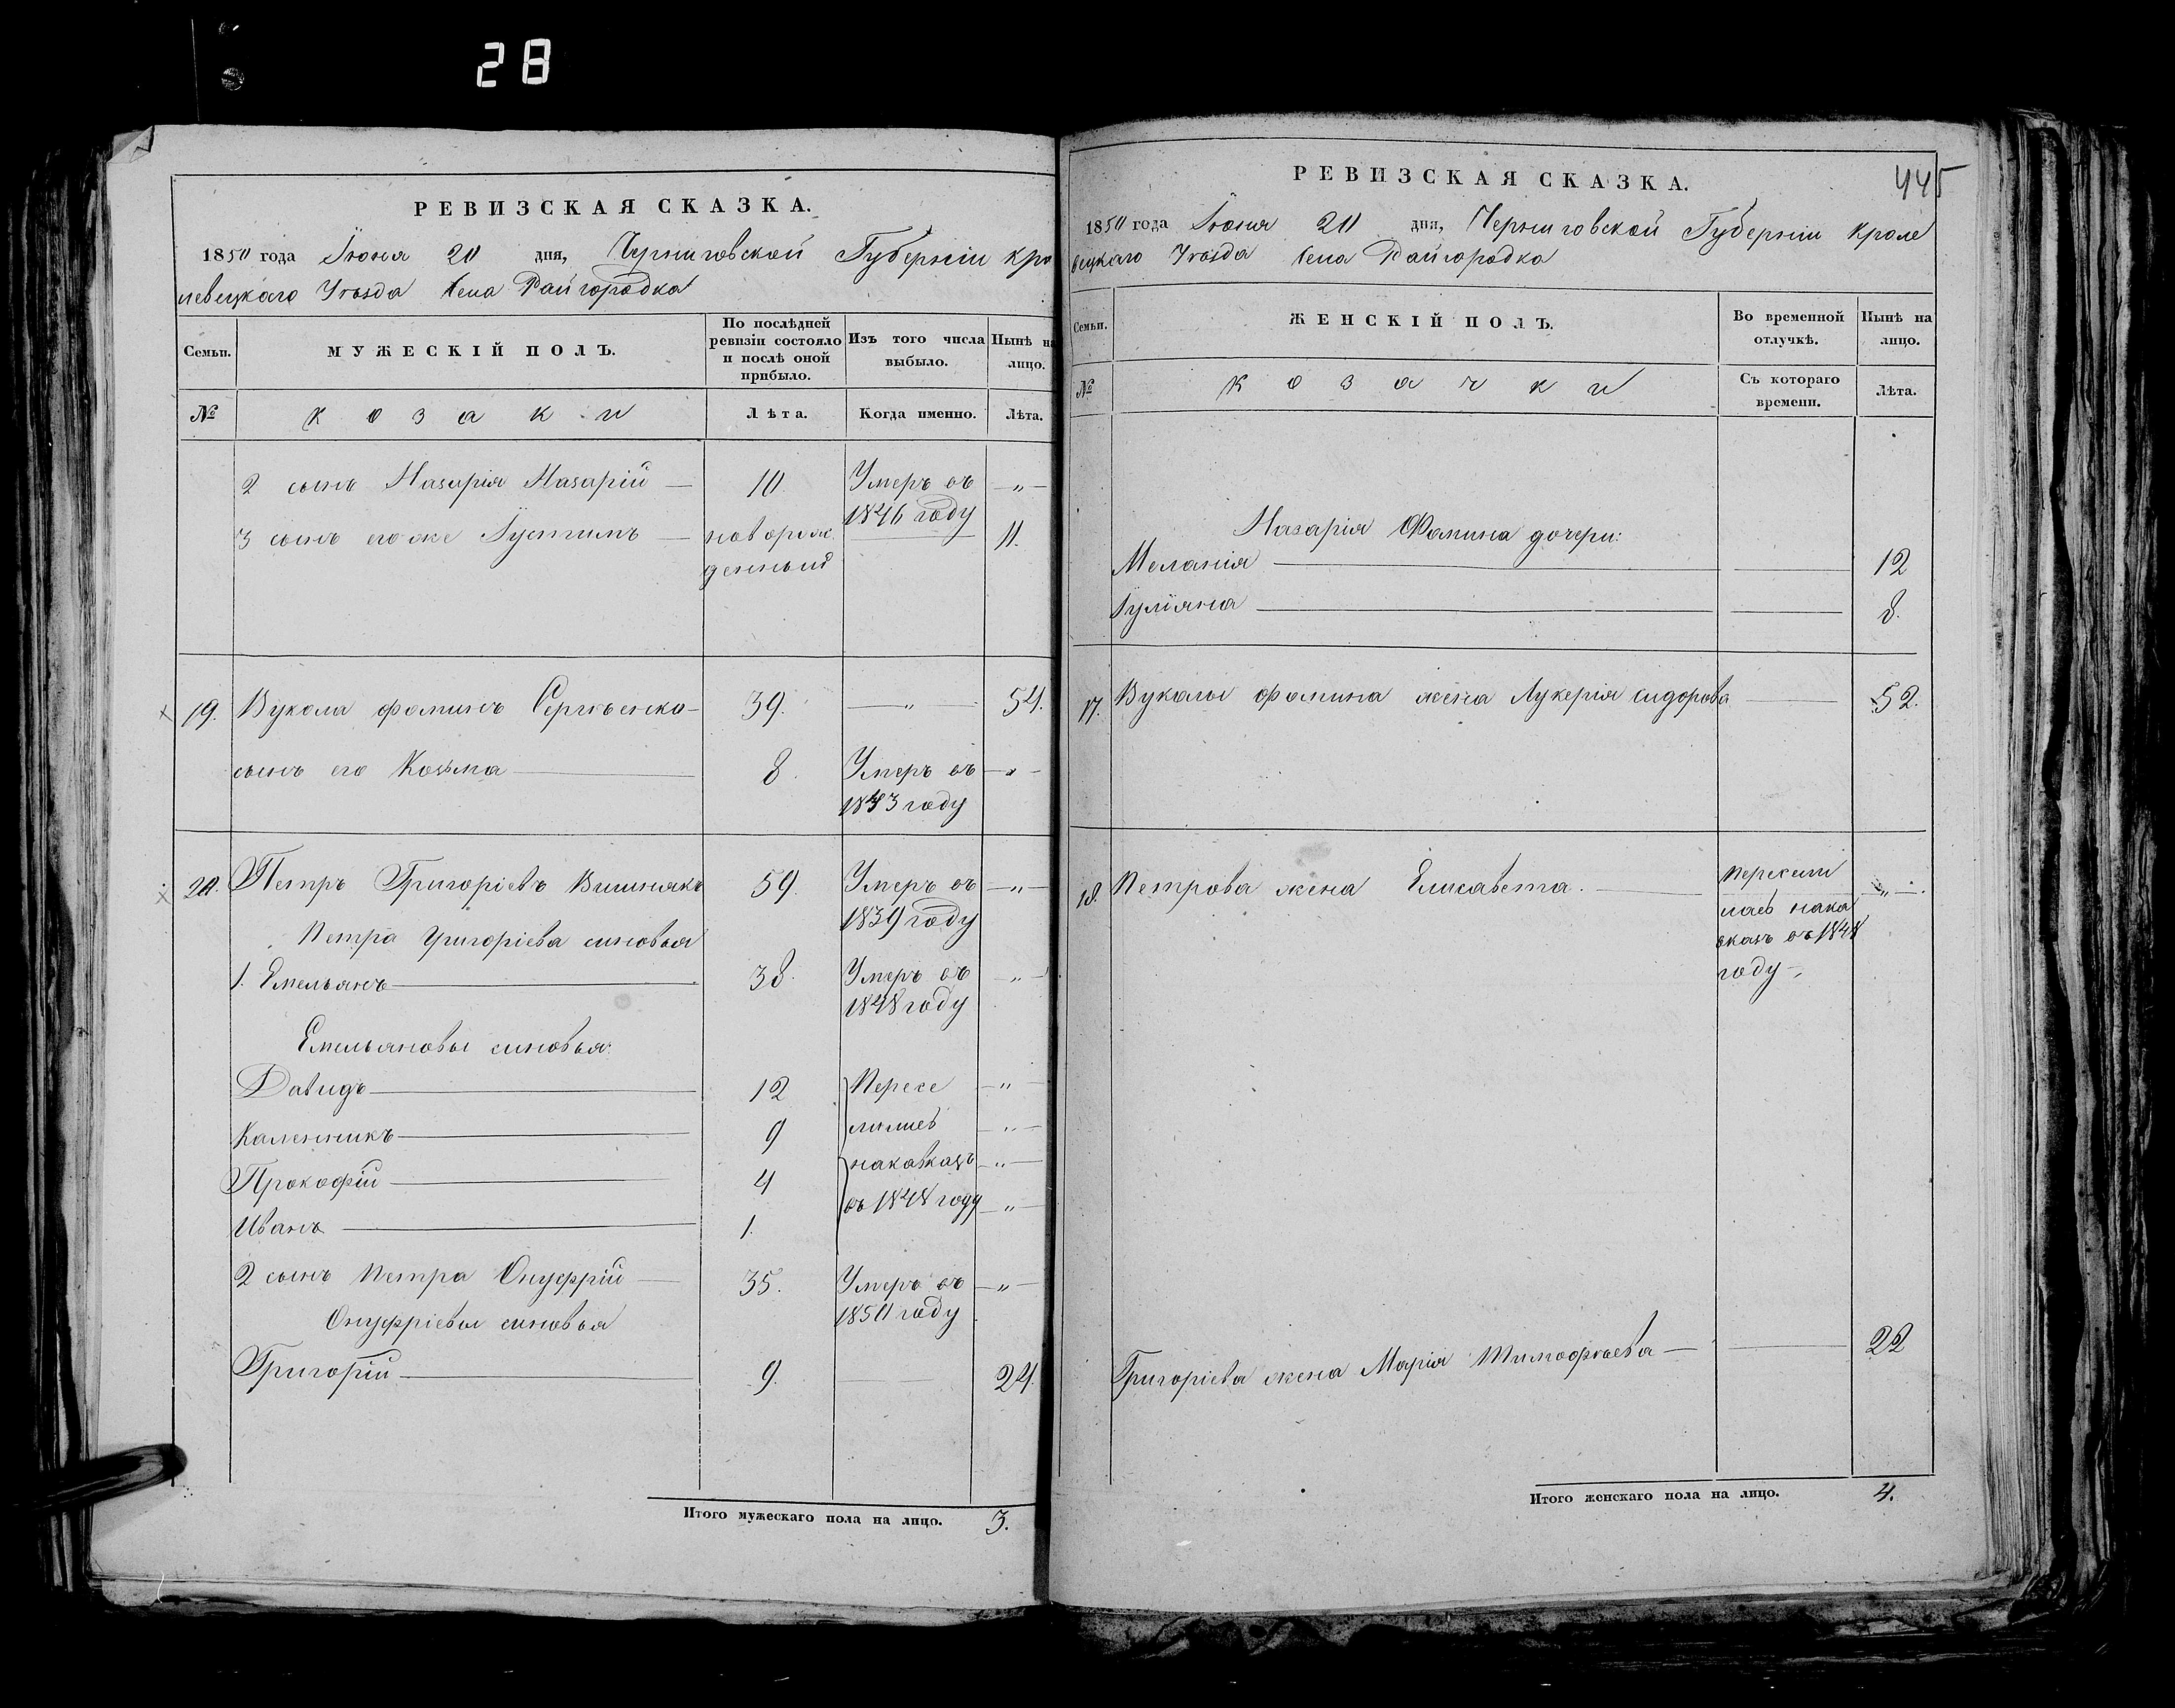 28
РЕВИЗСКАЯ СКАЗКА.
1850 года Іюня 20 дня, Черниговской Губерніи Кро
левецкаго Уѣзда Села Райгородка
Семьи.
МУЖЕСКІЙ ПОЛЪ.
По послѣдней ревизіи состояло и послѣ оной прибыло.
Изъ того числа выбыло.
Нынѣ на лицо.
№
Козаки
Лѣта.
Когда именно.
Лѣта.
2 сынъ Назарія Назарій — 10 Умеръ въ — „ —
1846 году
3 сынъ его же Іустинъ — новорож 11.
денный
19. Вукола Фоминъ Сергѣенко — 39. — „ — 54.
сынъ его Козьма — 8. Умеръ въ — „ —
1843 году
20. Петръ Григоріевъ Вишнякъ 59. Умеръ въ — „ —
1839 году
Петра Григоріева синовья
1. Емельянъ — 38. Умеръ въ „ —
1848 году
Емельяновы синовья:
Давидъ — 12 Пересе — „ —
Каленникъ — 9 лились — „ —
Прокофій — 4 накавказъ — „ —
Иванъ — 1. въ 1848 году — „ —
2 сынъ Петра Онуфрій — 35. Умеръ въ — „ —
1850 году
Онуфріевы синовья
Григорій — 9. — 24.
Итого мужескаго пола на лицо. 3.
445
РЕВИЗСКАЯ СКАЗКА.
1850 года Іюня 20 дня, Черниговской Губерніи Кроле
вецкаго Уѣзда Села Райгородка
Семьи.
ЖЕНСКІЙ ПОЛЪ.
Во временной отлучкѣ.
Нынѣ на лицо.
№
Козачки
Съ котораго времени.
Лѣта.
Назарія Фомина дочери:
Меланія — — 12
Іуліяна — — 8.
17. Вуколы Фомина жена Лукерія Сидорова — 52.
18. Петрова жена Елисавета. — Пересели — „ —.
лась нака
вказъ въ 1848
году —,
Григоріева жена Марія Тимофѣева — — 22
Итого женскаго пола на лицо. 4.